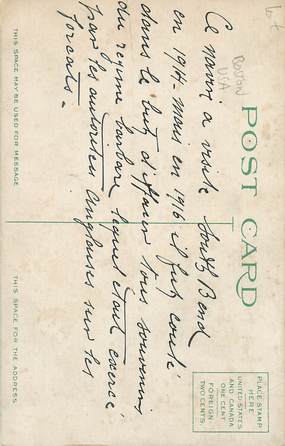 USA
THIS SPACE MAY BE USED FOR MESSAGE
POST CARD
THIS SPACE FOR THE ADDRESS
PLACE STAMP
HERE
UNITED STATES
AND CANADA
ONE CENT
FOREIGN
TWO CENTS
Ce navire a visité South Bend
en 1914 - mais en 1916 il fut coulé
dans le but d'effacer tous souvenirs
du regime barbare lequel etait exercé
par les autorités Anglaises sur les
forcats -